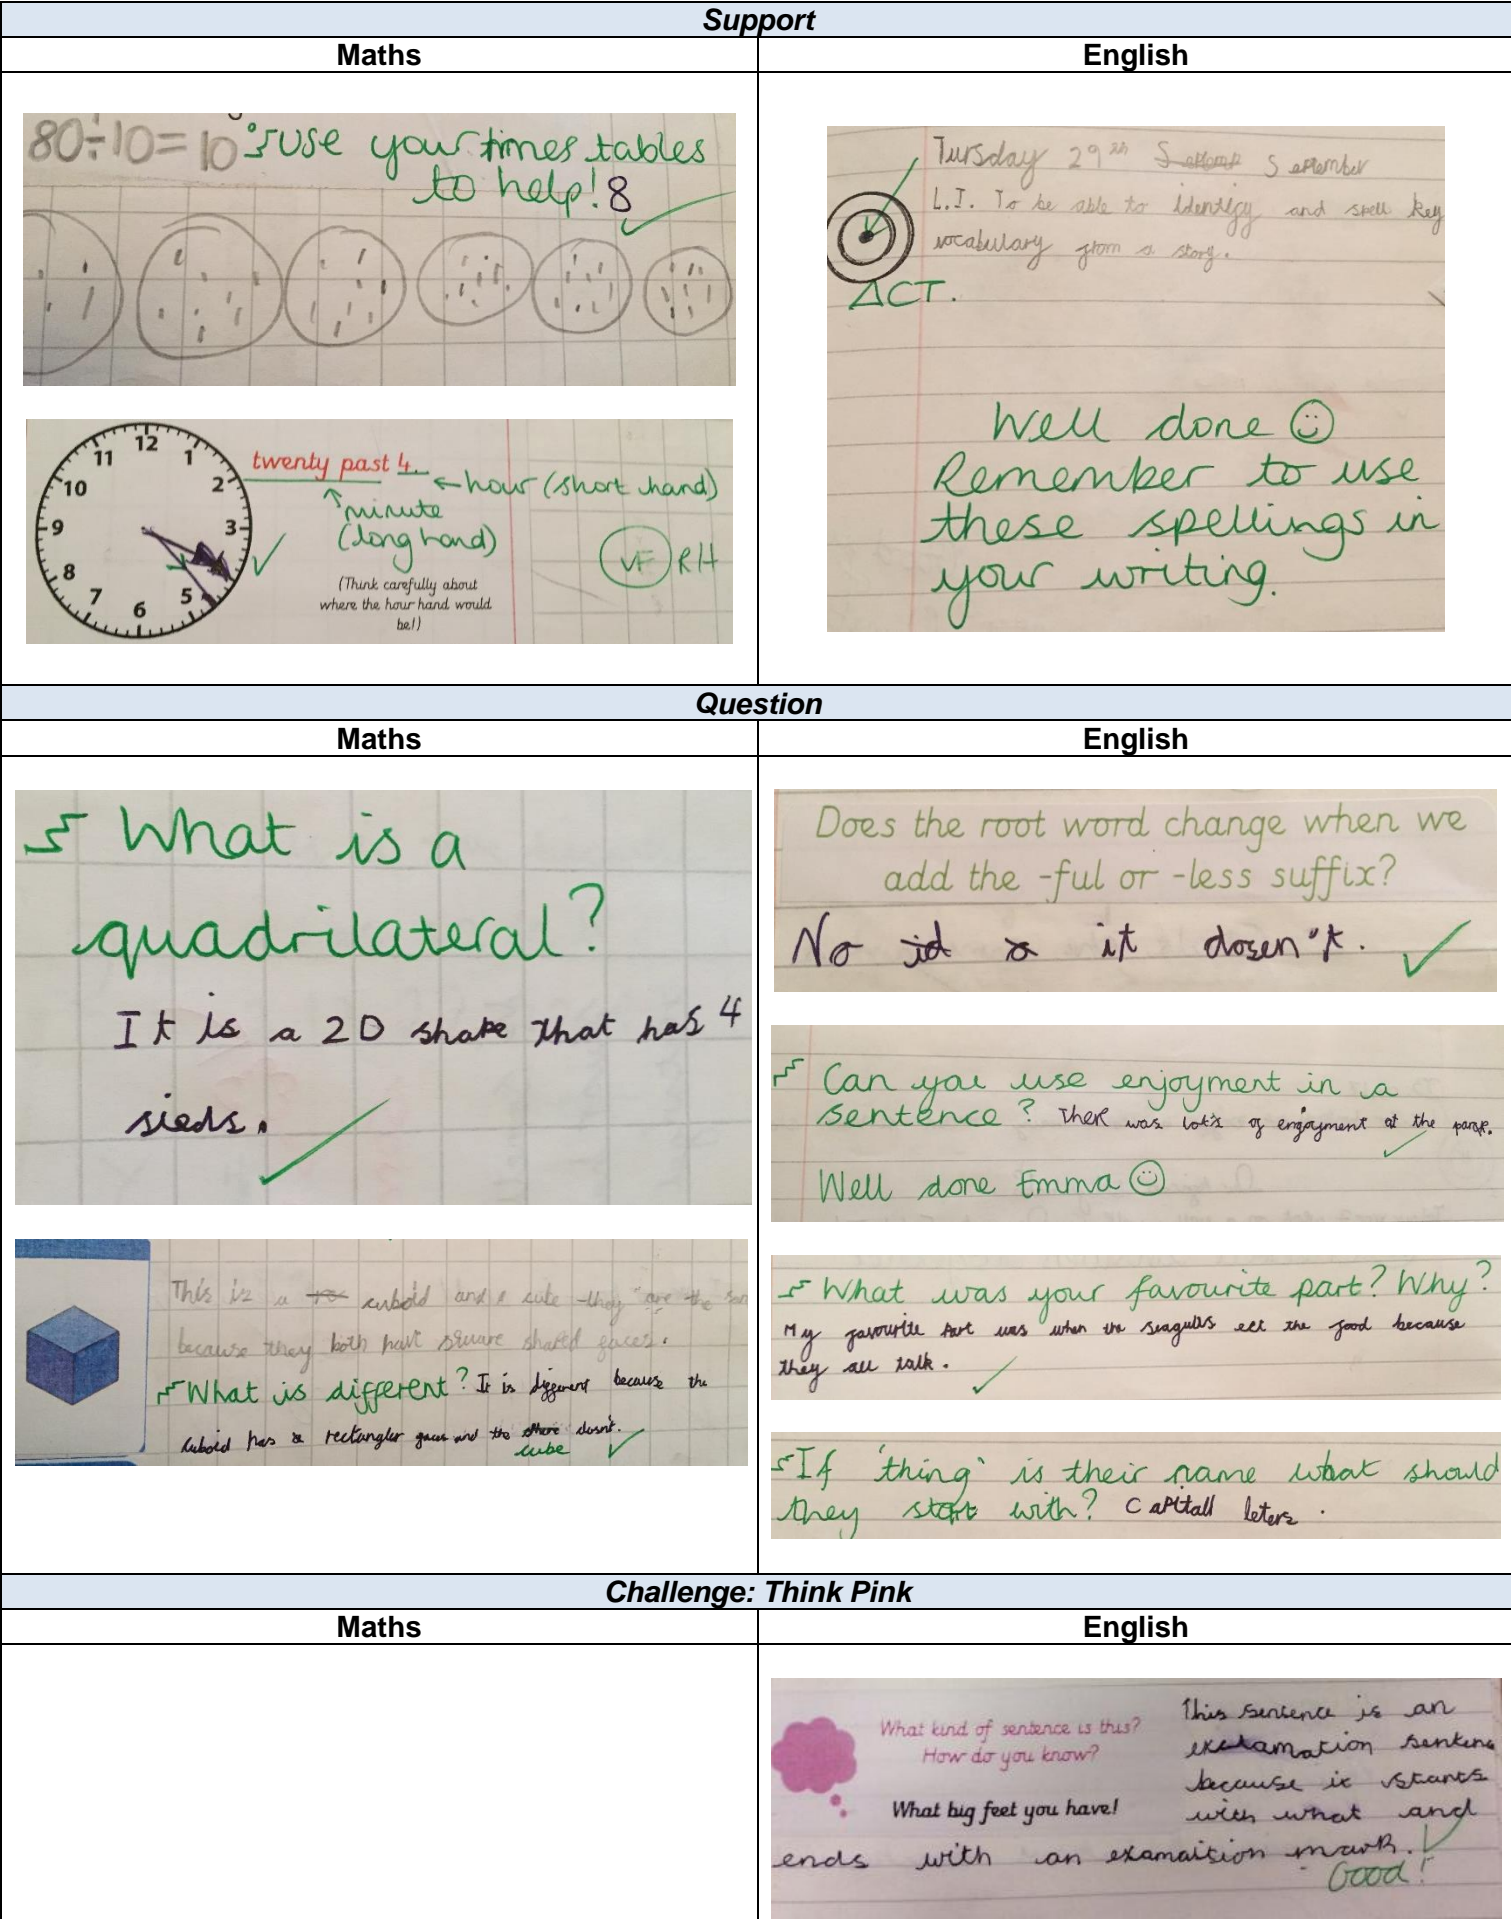 Support
Maths
English
80÷10=10 use your times tables
to help! 8
12
11
1
twenty past 4.
10
2
hour (short hand)
minute
9
3
(long hand)
VF RH
8
(Think carefully about
7
5
where the hour hand would
6
be!)
Tursday 29th September
L.I. To be able to identify and spell key
vocabulary from a story.
ACT.
Well done
Remember to use
these spellings in
your writing.
Question
Maths
English
What is a
quadrilateral?
It is a 2D shape that has 4
sieds.
This is a cuboid and a cube they are the
because they both have square shaped faces.
What is different? It is different because the
cuboid has a rectangler faces and the dosn't.
cube
Does the root word change when we
add the -ful or -less suffix?
No it dosen't.
Can you use enjoyment in a
sentence? Ther was lots of enjoyment at the park.
Well done Emma
What was your favourite part? Why?
My favourite part was when the seagulls eet the food because
they all talk.
If 'thing' is their name what should
they start with? Capitall leters.
Challenge: Think Pink
Maths
English
What kind of sentence is this?
How do you know?
What big feet you have!
This sentence is an
exclamation sentene
because it starts
with what and
ends with an examaition mark.
Good!